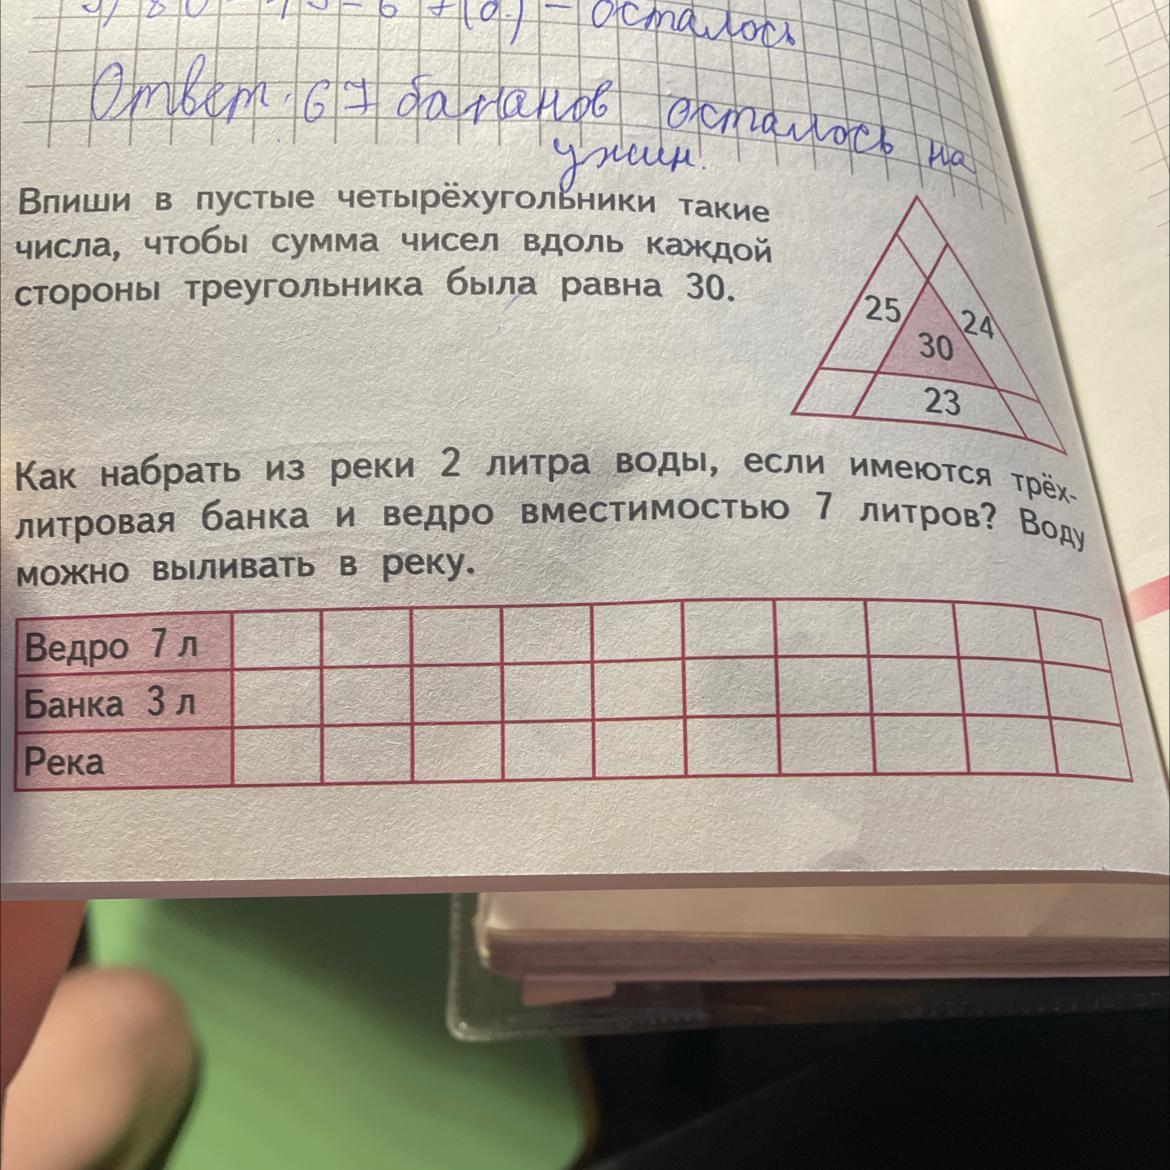 осталось
Ответ: 67 бананов осталось на
ужин.
Впиши в пустые четырёхугольники такие
числа, чтобы сумма чисел вдоль каждой
стороны треугольника была равна 30.
25
24
30
23
Как набрать из реки 2 литра воды, если имеются трёх-
литровая банка и ведро вместимостью 7 литров? Воду
можно выливать в реку.
Ведро 7 л
Банка 3 л
Река